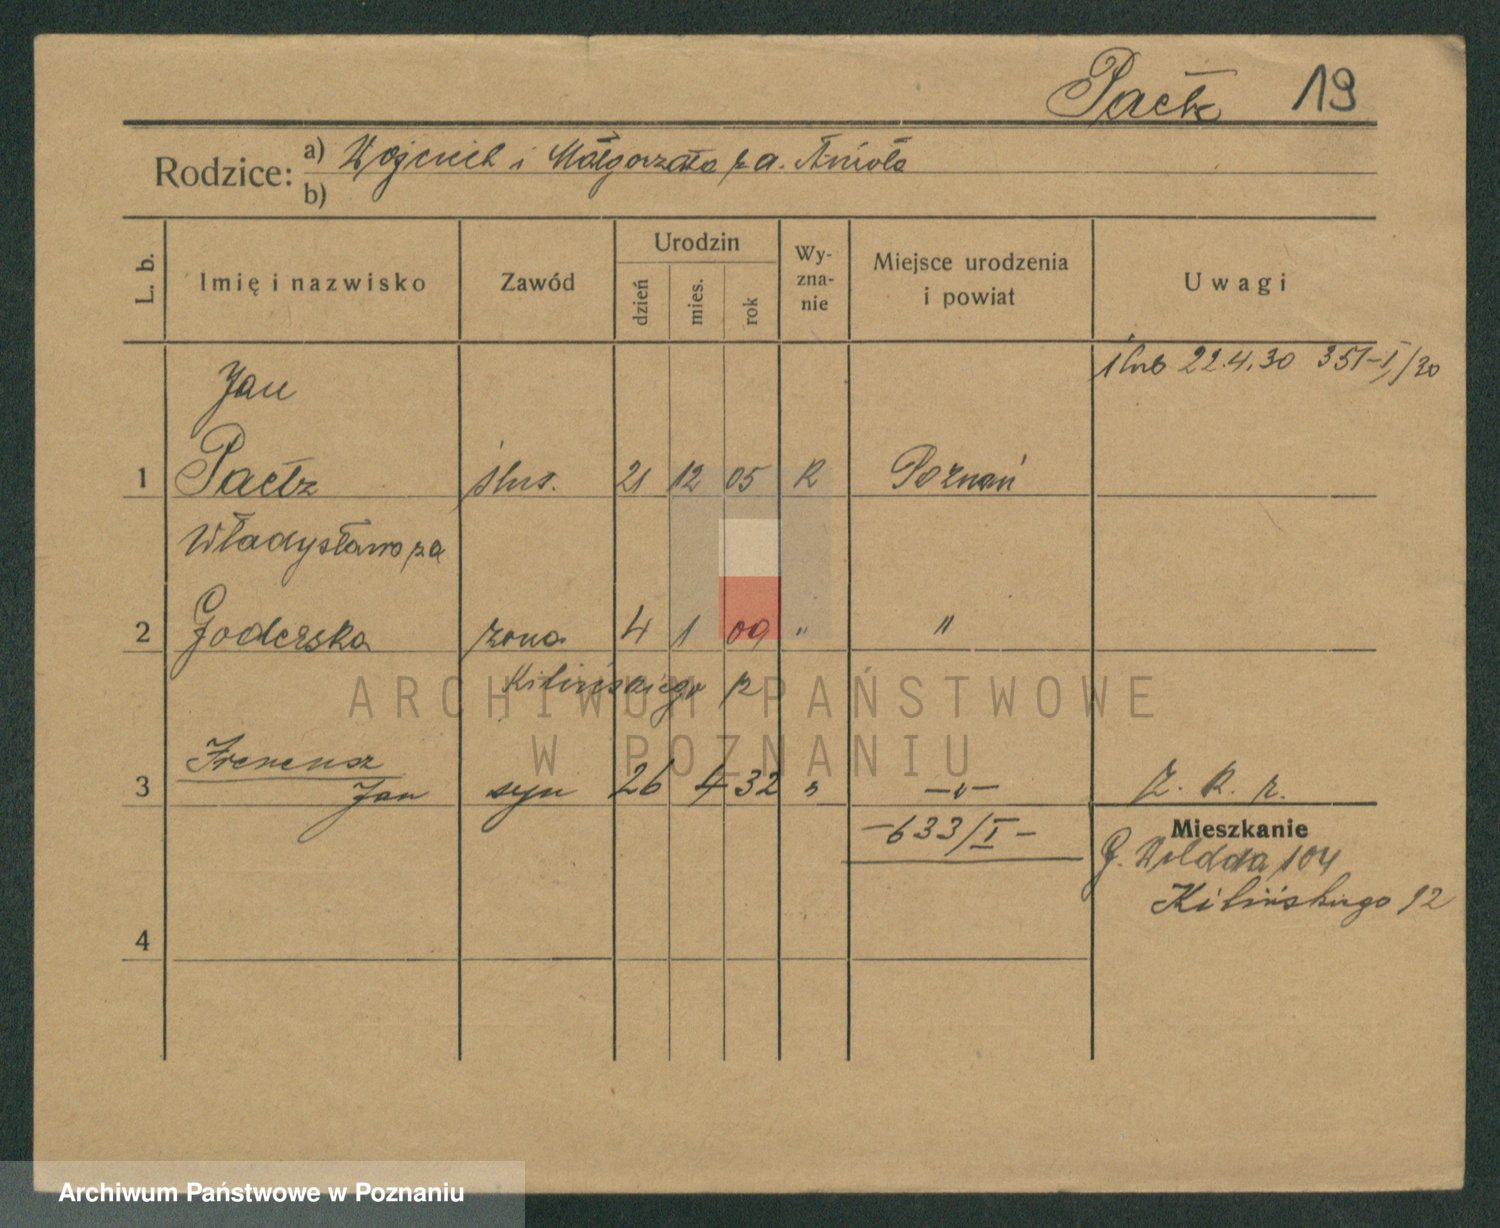 Paetz 19
Rodzice: a) Wojciech i Małgorzata z d. Anioła
b)
L. b. Imię i nazwisko Zawód Urodzin dzień mies. rok Wy-zna-nie Miejsce urodzenia i powiat Uwagi
ślub 22.4.30 351-I/30
Jan
1 Paetz ślus. 21 12 05 R Poznań
Władysława z d
2 Goderska żona 4 1 09 " "
Kilińskiego 12
Ireneusz
3 Jan syn 26 4 32 " -"- Z. R. r.
-633/I-
Mieszkanie
G. Wilda 104
Kilińskiego 12
4
ARCHIWUM PAŃSTWOWE
W POZNANIU
Archiwum Państwowe w Poznaniu